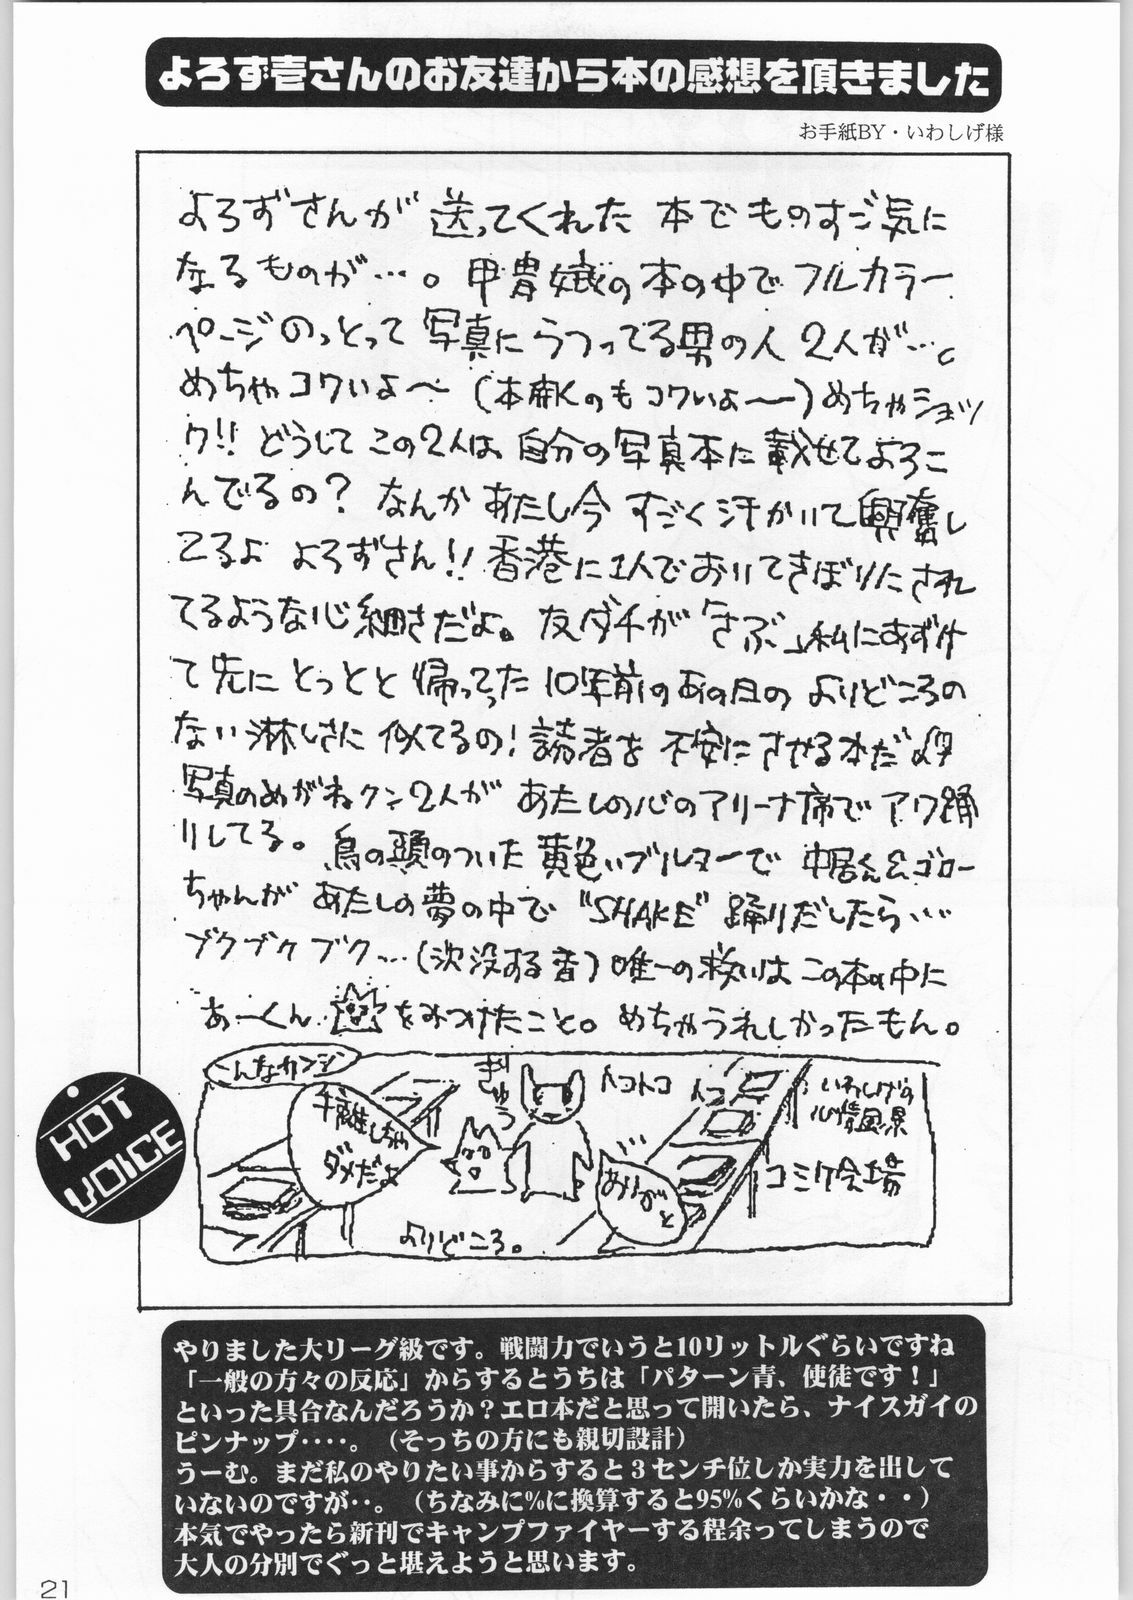 よろず壱さんのお友達から本の感想を頂きました
お手紙BY・いわしげ様
よろずさんが 送ってくれた 本で ものすご気に
なるものが…。甲冑娥の本の中で フルカラー
ページのっとって 写真に うつってる男の人 2人が…。
めちゃ コワいよ〜 (本開くのも コワいよ〜) めちゃショッ
ク!! どうして この2人は 自分の写真本に 載せてよろこ
んでるの? なんか あたし今 すごく 汗かいて 興奮し
てるよ よろずさん!! 香港に1人で おいてきぼりにされ
てるような心細さだよ。 友ダチが 「さぶ」私にあずけ
て先に とっとと 帰ってった 10年前のあの日の よりどころの
ない淋しさに 似てるの! 読者を 不安にさせる本だよ
写真のめがねクン2人が あたしの心のアリーナ席で アワ踊
りしてる。 鳥の頭のついた 黄色いブルマーで 中居くん&ゴロー
ちゃんが あたしの夢の中で "SHAKE" 踊りだしたら…
ブクブクブク…(沈没する音) 唯一の救いは この本の中に
あーくん をみつけたこと。 めちゃうれしかったもん。
こんなカンジ
手離しちゃ
ダメだよ
ぎゅう
トコトコ
トコ
いわしげの
心情風景
コミケ会場
ありがと
よりどころ。
HOT
VOICE
やりました大リーグ級です。戦闘力でいうと10リットルぐらいですね
「一般の方々の反応」からするとうちは「パターン青、使徒です!」
といった具合なんだろうか?エロ本だと思って開いたら、ナイスガイの
ピンナップ‥‥。（そっちの方にも親切設計）
うーむ。まだ私のやりたい事からすると3センチ位しか実力を出して
いないのですが‥。（ちなみに%に換算すると95%くらいかな・・）
本気でやったら新刊でキャンプファイヤーする程余ってしまうので
大人の分別でぐっと堪えようと思います。
21